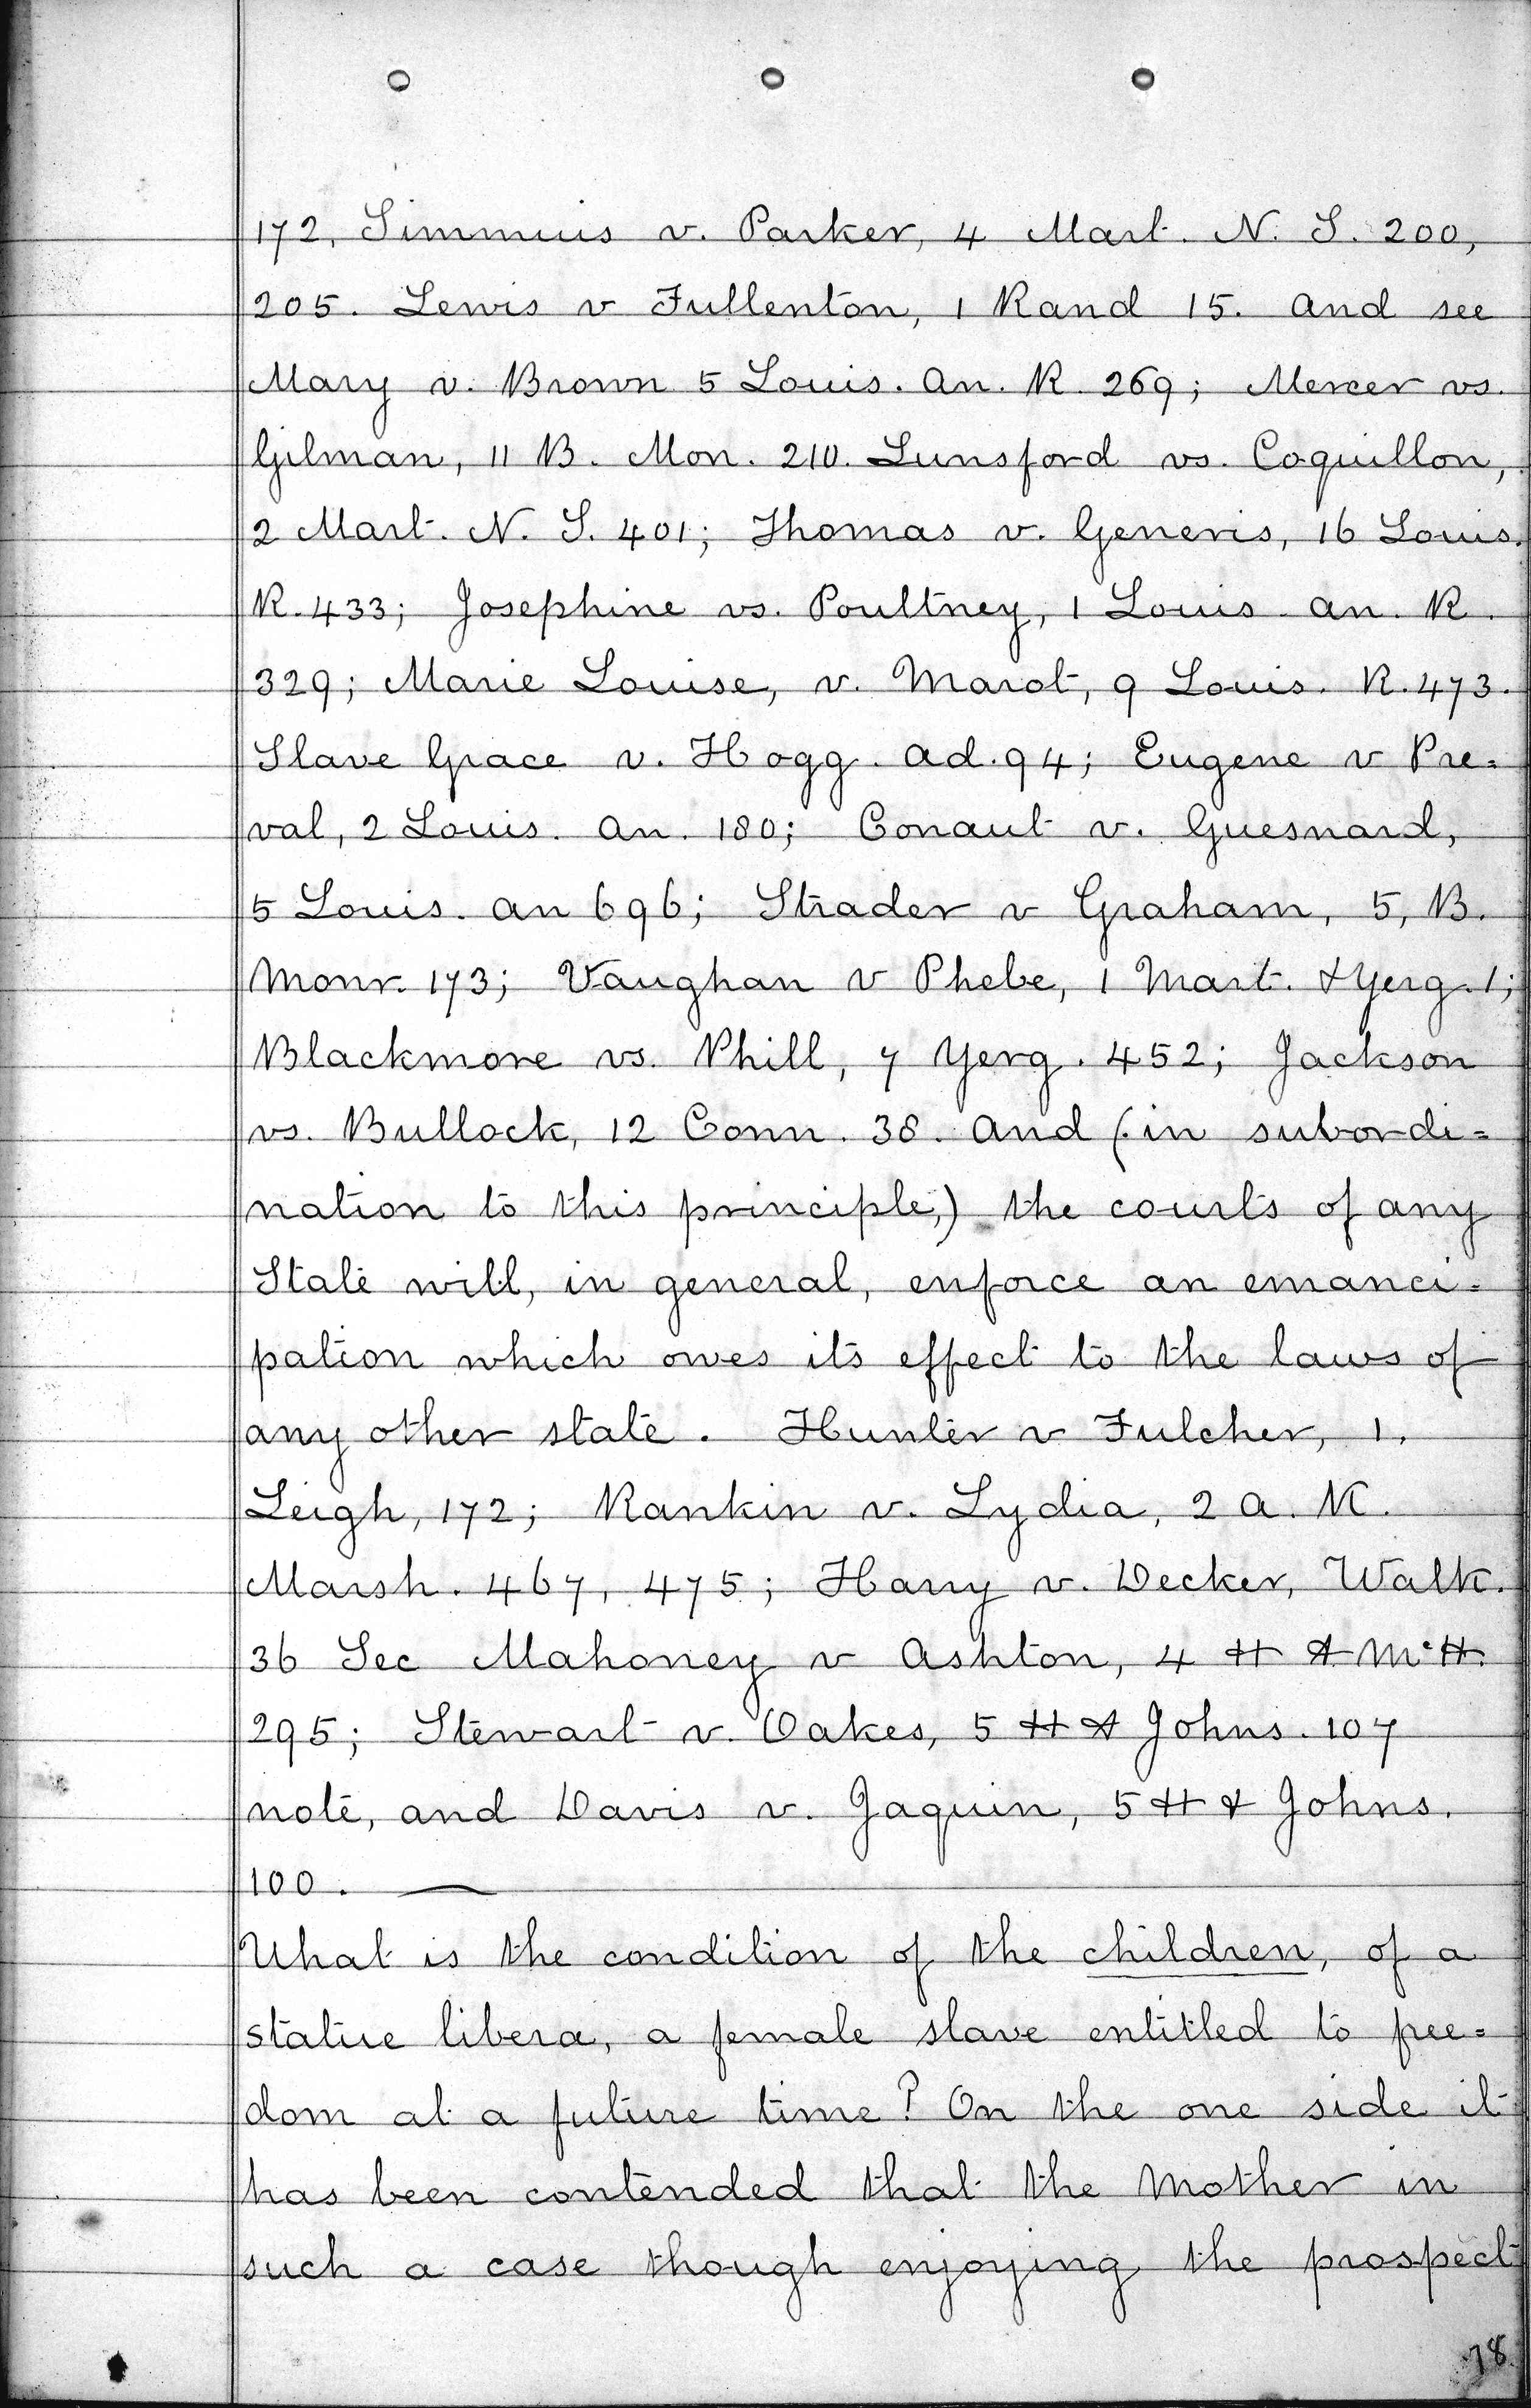 172, Simmius v. Parker, 4 Mart. N. S. 200,
205. Lewis v Fullenton, 1 Rand 15. And see
Mary v. Brown 5 Louis. An. R. 269; Mercer vs.
Gilman, 11 B. Mon. 210. Lunsford vs. Coquillon,
2 Mart. N. S. 401; Thomas v. Generis, 16 Louis.
R. 433; Josephine vs. Poultney, 1 Louis. An. R.
329; Marie Louise, v. Marot, 9 Louis. R. 473.
Slave Grace v. Hogg. Ad. 94; Eugene v Pre=
val, 2 Louis. An. 180; Conaut v. Guesnard,
5 Louis. An 696; Strader v Graham, 5, B.
Monr. 173; Vaughan v Phebe, 1 Mart. & Yerg. 1;
Blackmore vs. Phill, 7 Yerg. 452; Jackson
vs. Bullock, 12 Conn. 38. And (in subordi=
nation to this principle,) the courts of any
State will, in general, enforce an emanci=
pation which owes its effect to the laws of
any other state. Hunter v Fulcher, 1.
Leigh, 172; Rankin v. Lydia, 2 A. K.
Marsh. 467, 475; Harry v. Decker, Walk.
36 Sec Mahoney v Ashton, 4 H & McH.
295; Stewart v. Oakes, 5 H & Johns. 107
note, and Davis v. Jaquin, 5 H & Johns.
100. —
What is the condition of the children, of a
statue libera, a female slave entitled to free=
dom at a future time? On the one side it
has been contended that the Mother in
such a case though enjoying the prospect
78.